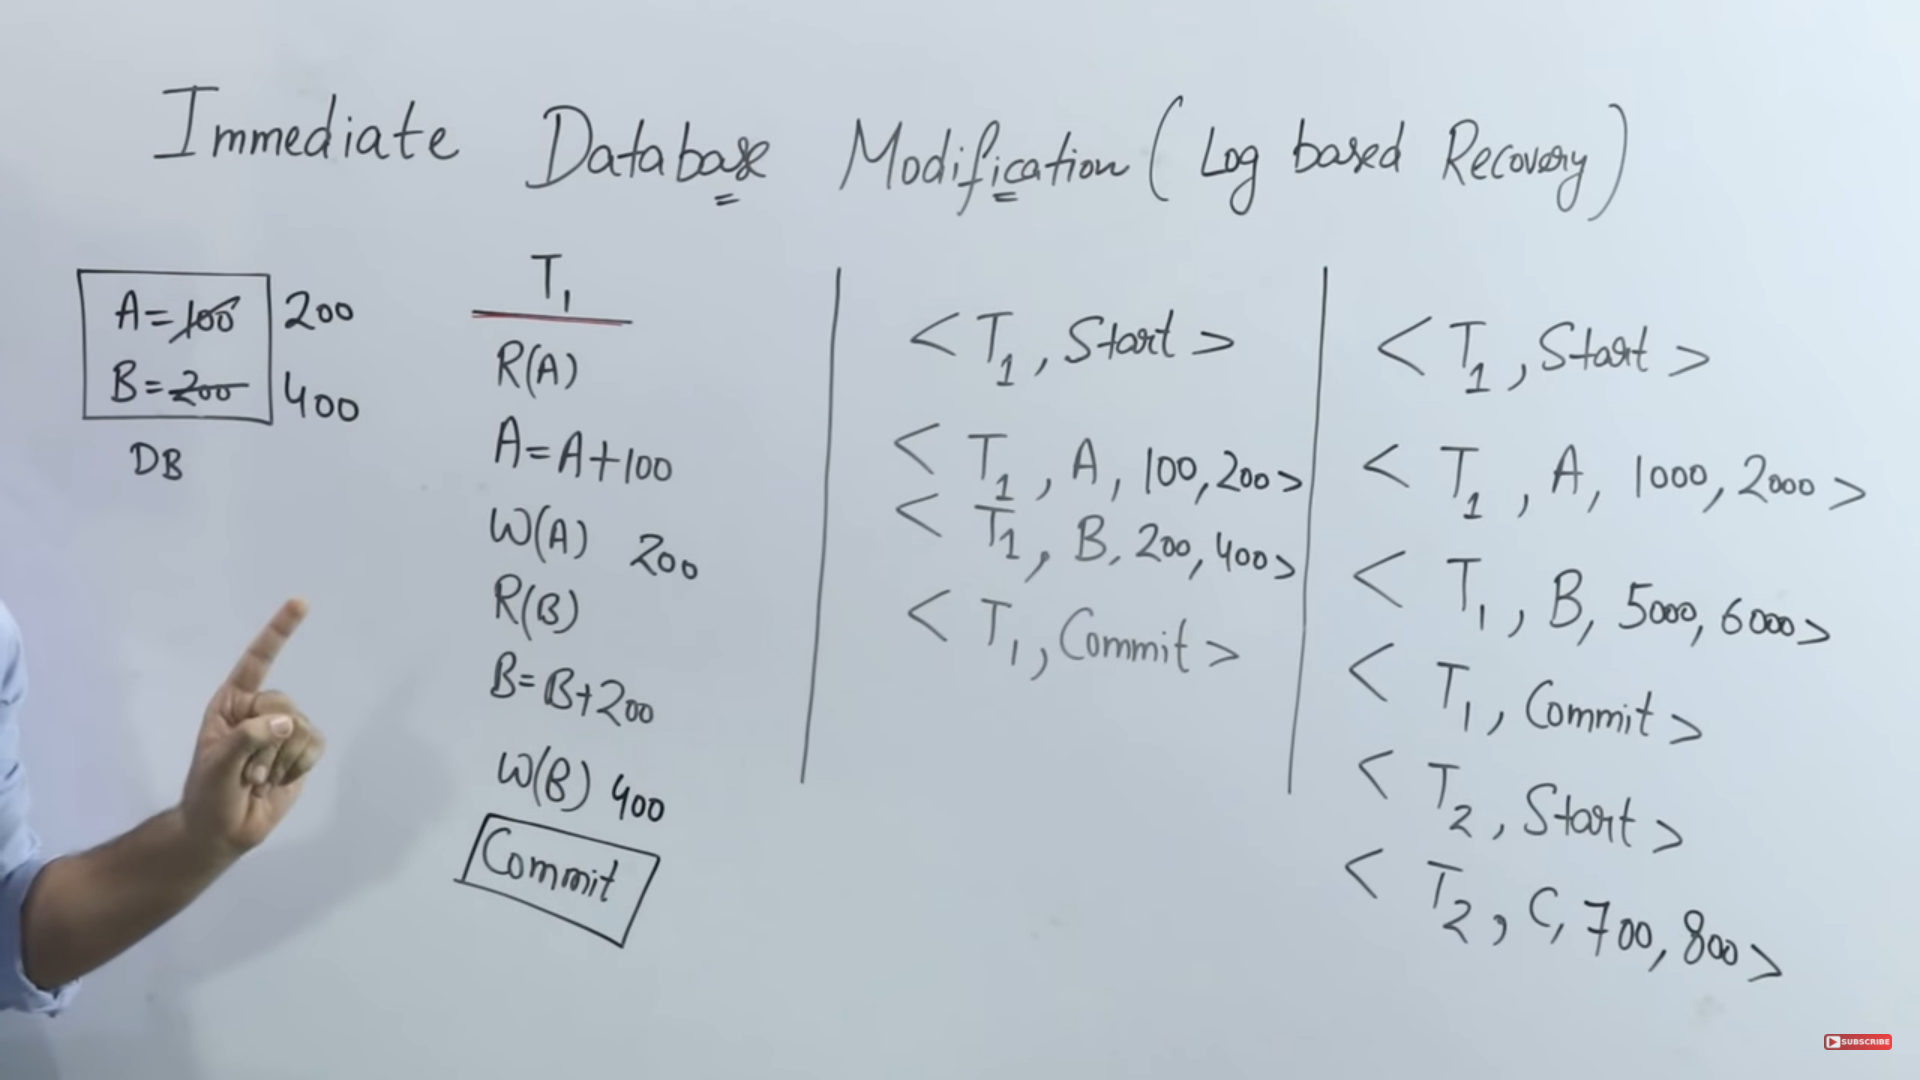 Immediate Database Modification (Log based Recovery)
A=100 200
B=200 400
DB
T1
R(A)
A=A+100
W(A) 200
R(B)
B=B+200
W(B) 400
Commit
<T1, Start>
<T1, A, 100, 200>
<T1, B, 200, 400>
<T1, Commit>
<T1, Start>
<T1, A, 1000, 2000>
<T1, B, 5000, 6000>
<T1, Commit>
<T2, Start>
<T2, C, 700, 800>
SUBSCRIBE